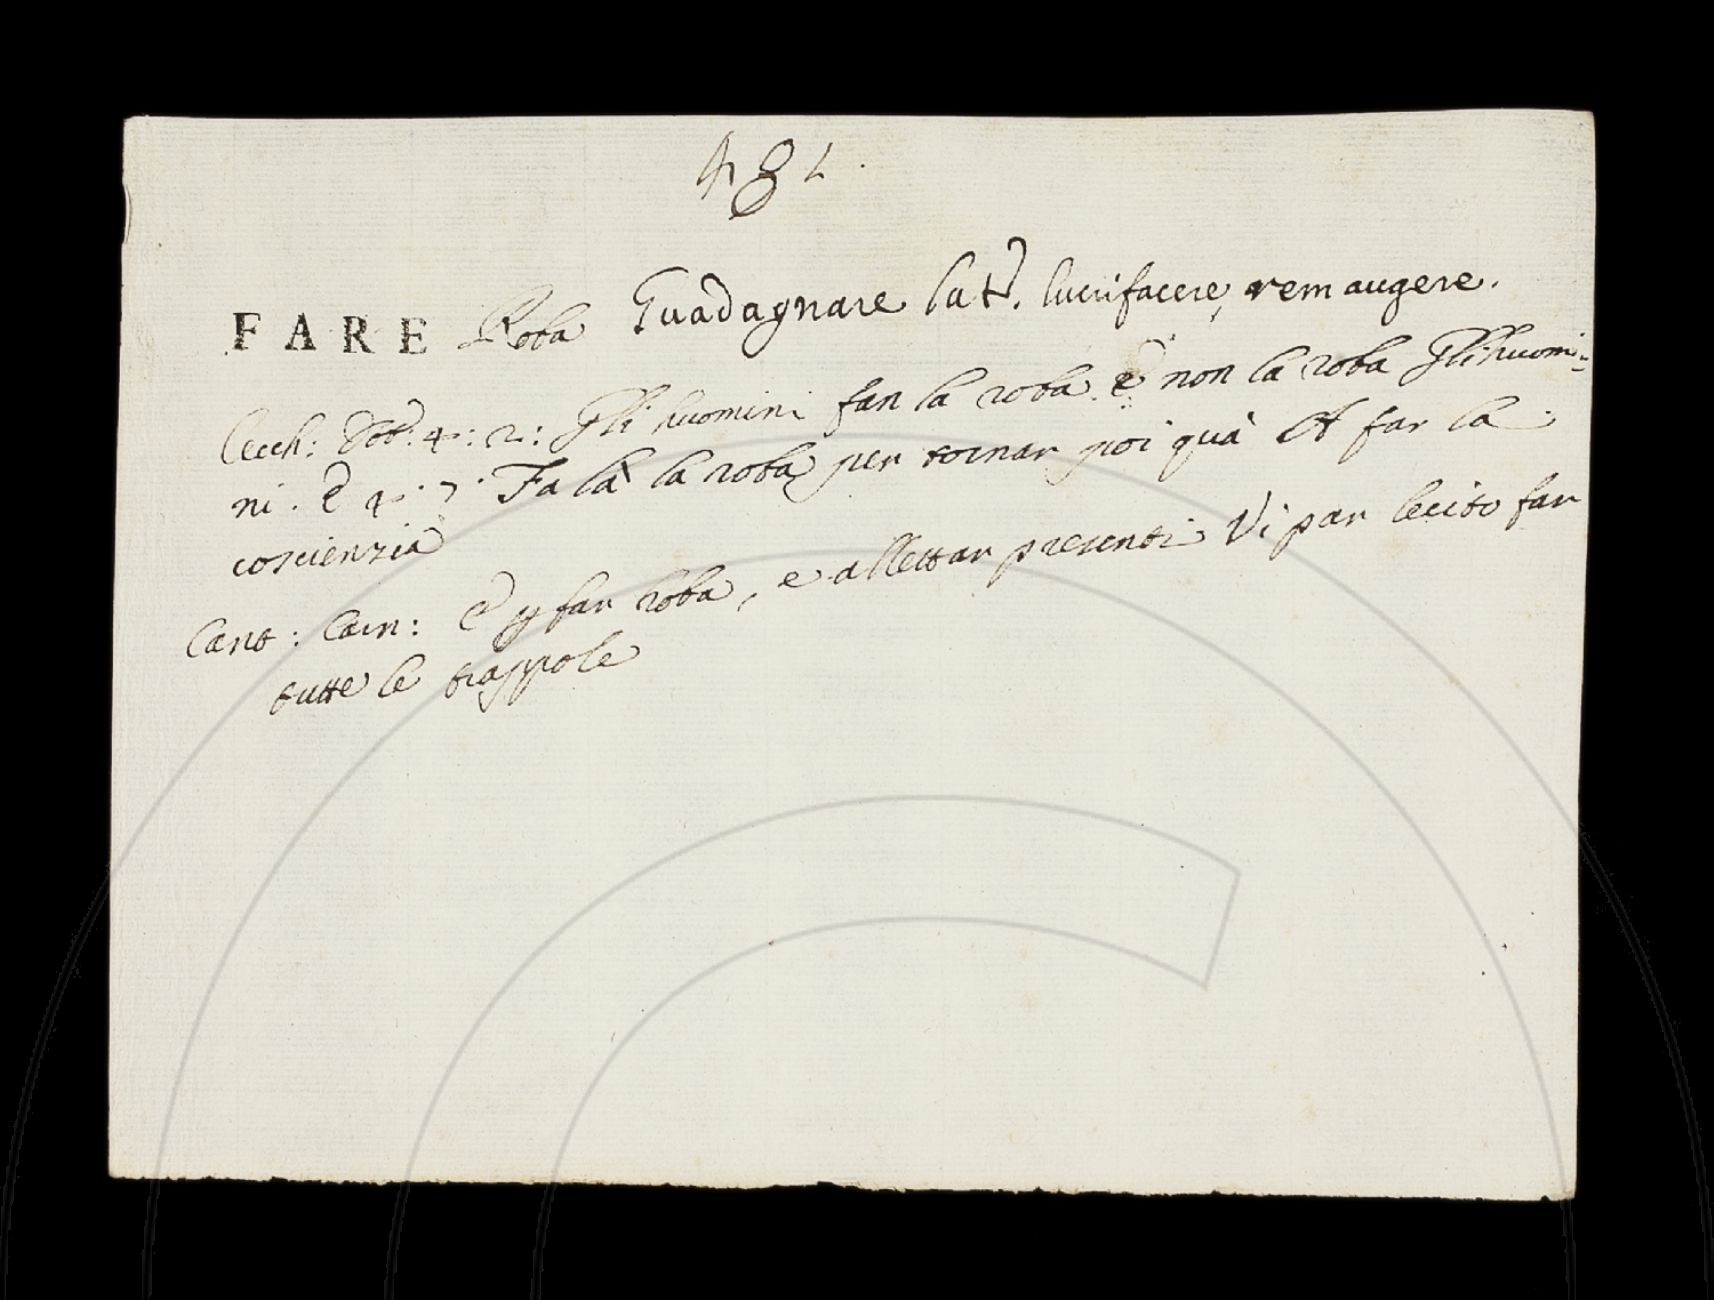 481.
FARE Roba Guadagnare lat. lucrifacere, rem augere.
Cecch: Dot: 4: 2: Gli huomini fan la roba. E non la roba Gli huomi-
ni. E 4: 7: Fa là la roba, per tornar poi quà A far la
coscienzia
Cant: Carn: E p far roba, e allettar presenti Vi par lecito far
tutte le trappole